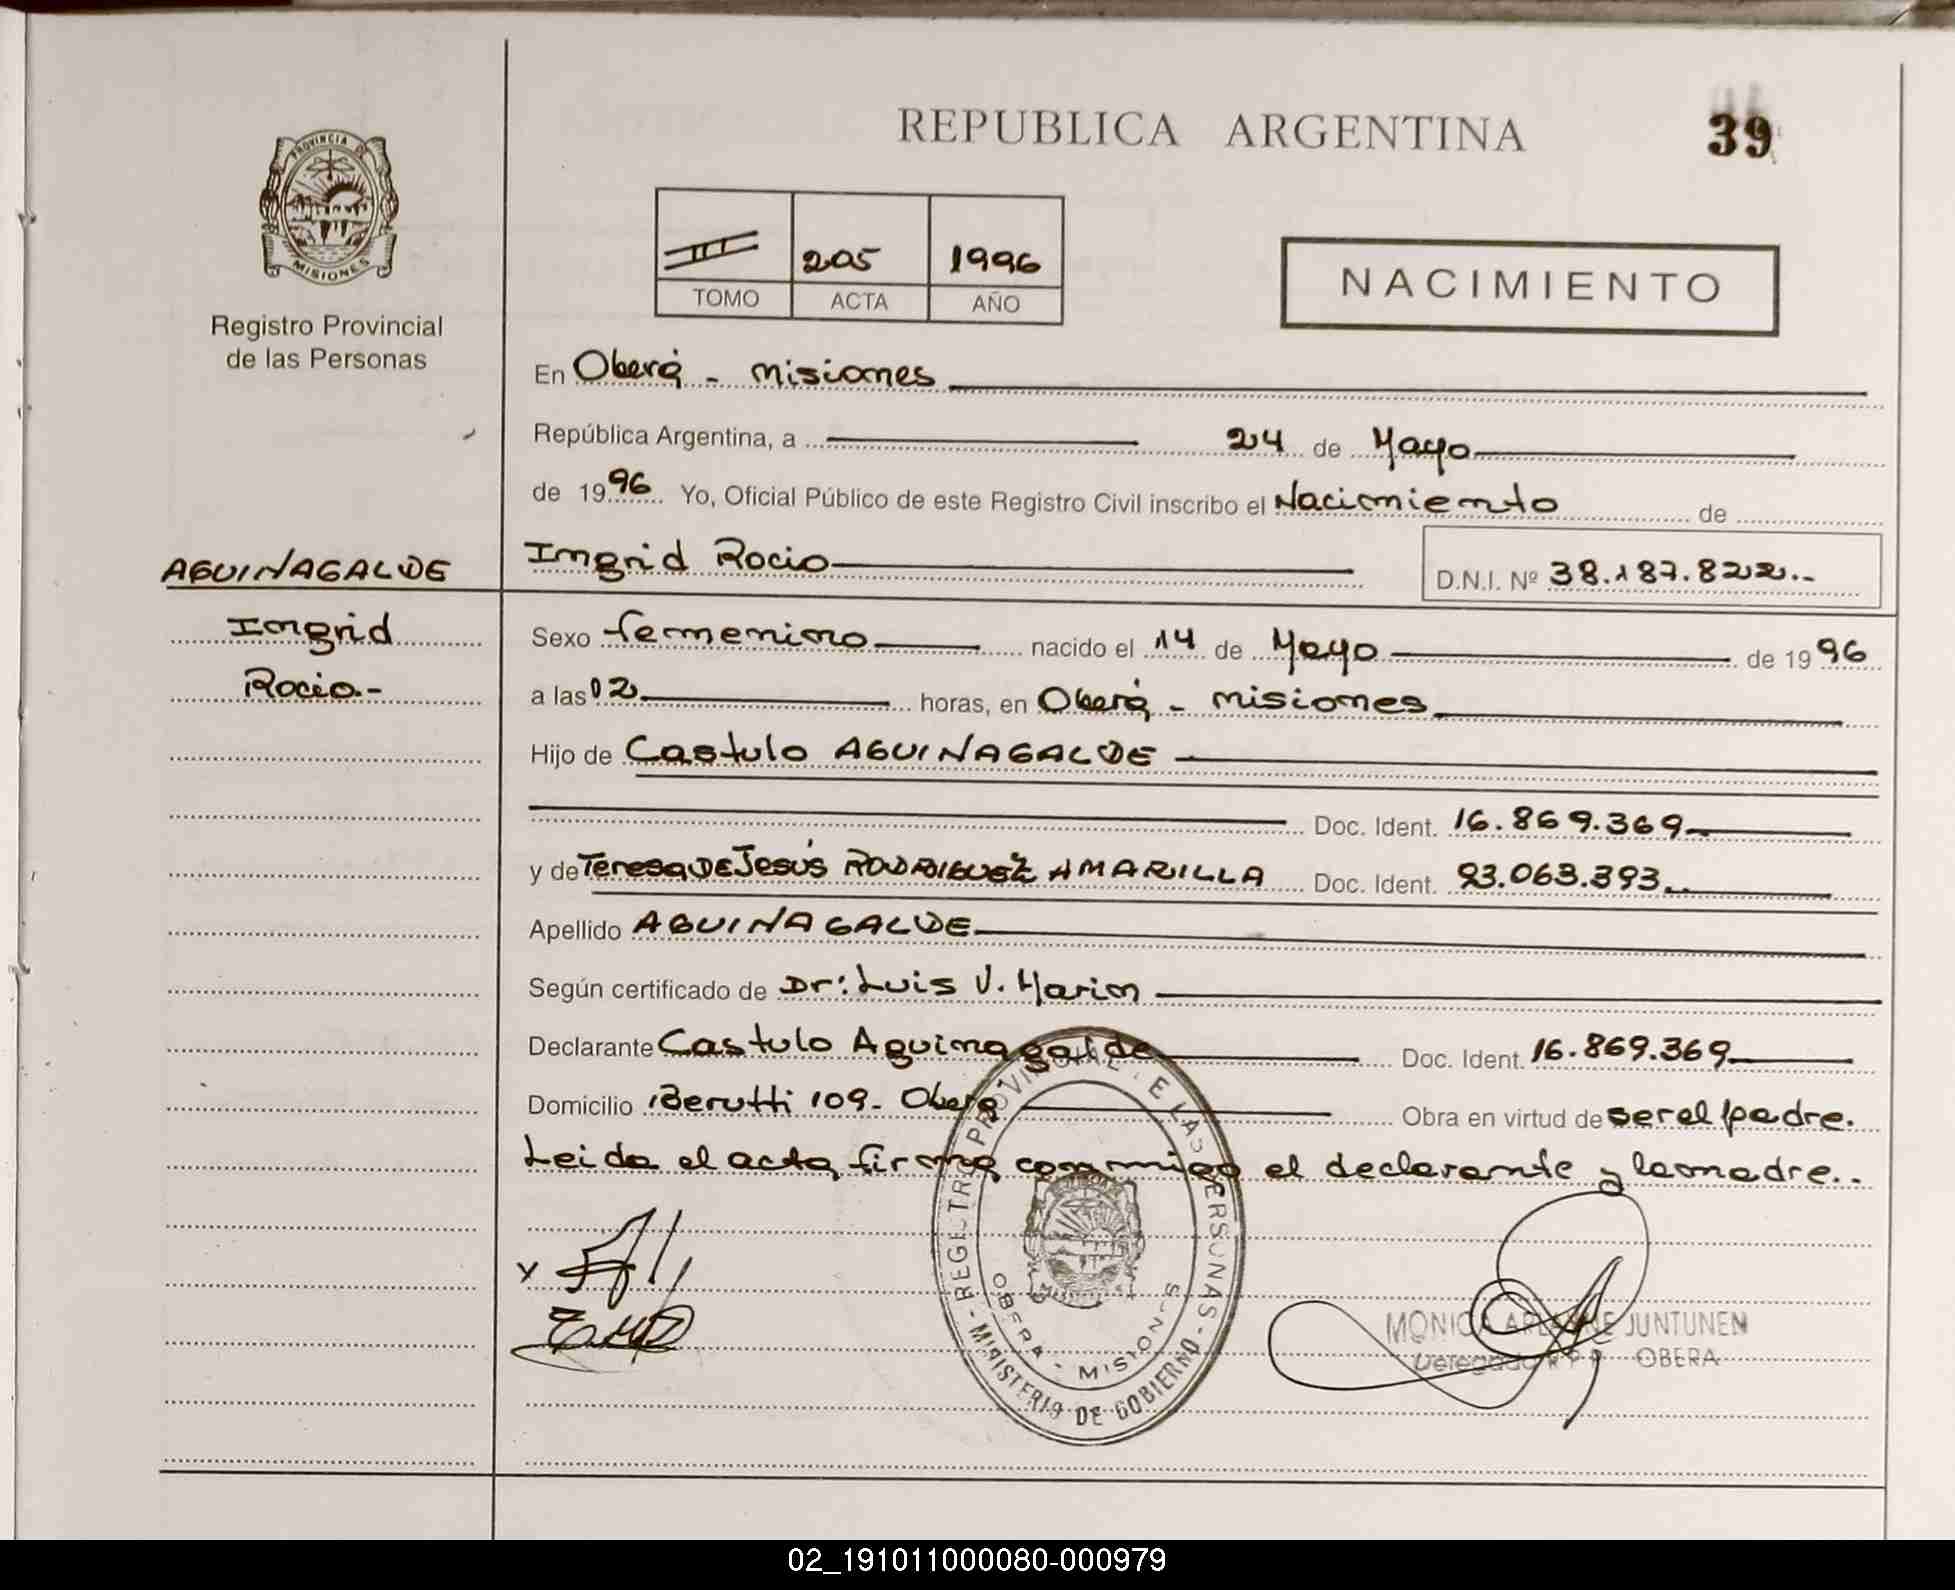 REPUBLICA ARGENTINA
39
PROVINCIA DE
MISIONES
Registro Provincial
de las Personas
III 205 1996
TOMO ACTA AÑO
NACIMIENTO
En Oberá - Misiones
República Argentina, a 24 de Mayo
de 1996 Yo, Oficial Público de este Registro Civil inscribo el Nacimiento de
AGUINAGALDE
Ingrid
Rocio.-
Ingrid Rocio
D.N.I. Nº 38.187.822.-
Sexo femenino nacido el 14 de Mayo de 1996
a las 02 horas, en Oberá - Misiones
Hijo de Castulo AGUINAGALDE
Doc. Ident. 16.869.369
y de Teresa DE Jesús RODRIGUEZ AMARILLA Doc. Ident. 93.063.393.-
Apellido AGUINAGALDE
Según certificado de Dr: Luis V. Marin
Declarante Castulo Aguinagalde Doc. Ident. 16.869.369
Domicilio Berutti 109 - Oberá Obra en virtud de ser el padre.
Leida el acta firma conmigo el declarante y la madre..
REGISTRO PROVINCIAL DE LAS PERSONAS - MINISTERIO DE GOBIERNO -
OBERA - MISIONES
MONICA JUNTUNEN
Delegada R.P.P. OBERA
02_191011000080-000979